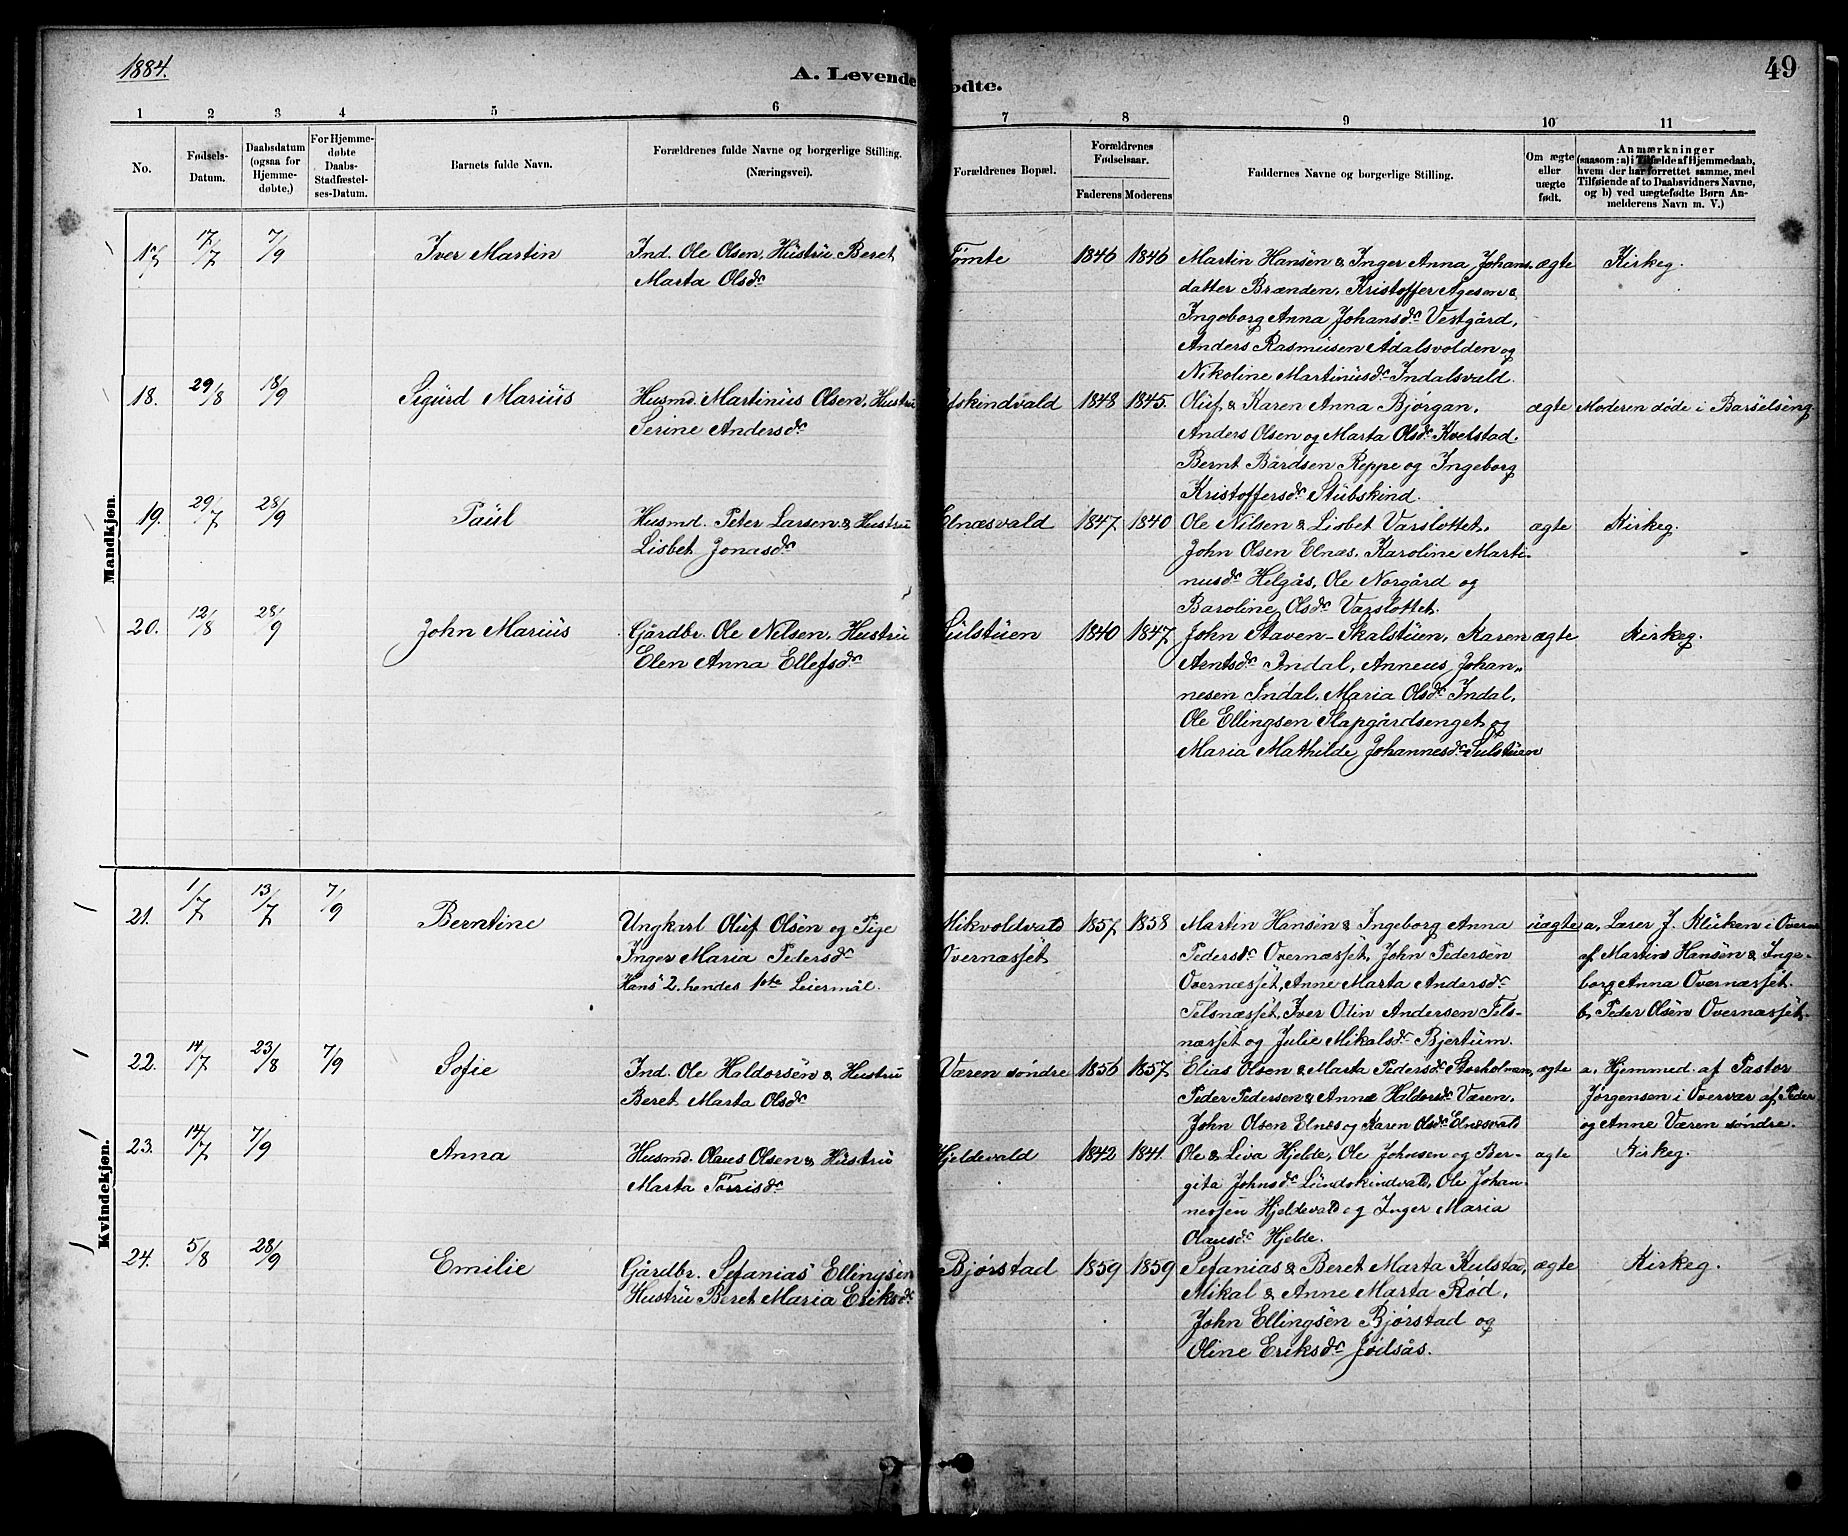 1884.
49
A. Levende
ødte.
1 2 3 4 5 6 7 8 9 10 11
No.
Fødsels-
Datum.
Daabsdatum
(ogsaa for
Hjemme-
døbte,)
For Hjemme-
døbte
Daabs-
Stadfæstel-
ses-Datum.
Barnets fulde Navn.
Forældrenes fulde Navne og borgerlige Stilling.
(Næringsvei).
Forældrenes Bopæl.
Forældrenes
Fødselsaar.
Faderens Moderens
Faddernes Navne og borgerlige Stilling.
Om ægte
eller
uægte
født.
Anmærkninger
(saasom: a) i Tilfælde af Hjemmedaab,
hvem der har forrettet samme, med
Tilføiende af to Daabsvidners Navne,
og b) ved uægtefødte Børn An-
melderens Navn m. V.)
Mandkjøn.
17. 17/7 7/9 Iver Martin
Ind. Ole Olsen, Hustru Beret
Marta Olsdr
Tømte 1846 1846
Martin Hansen & Inger Anna Johans-
datter Brænden, Kristoffer Agesen &
Ingeborg Anna Johansdr Vestgård,
Anders Rasmusen Ådalsvolden og
Nikoline Martinusdr Indalsvald.
ægte Kirkeg.
18. 29/8 18/9 Sigurd Marius
Husmd. Martinus Olsen, Hustru
Serine Andersdr
fskindvald 1848 1845.
Oluf & Karen Anna Bjørgan,
Anders Olsen og Marta Olsdr Kvelstad.
Bernt Bårdsen Reppe og Ingeborg
Kristoffersdr Stubskind.
ægte Moderen døde i Barselseng.
19. 29/7 28/9 Paul
Husmd. Peter Larsen & Hustru
Lisbet Jonasdr
Elnæsvald 1847 1840
Ole Nilsen & Lisbet Varslottet,
John Olsen Elnæs, Karoline Marti-
nusdr Helgås, Ole Norgård og
Baroline Olsdr Varslottet.
ægte Kirkeg.
20. 12/8 28/9 John Marius
Gårdbr. Ole Nilsen, Hustru
Elen Anna Ellefsdr
Sulstuen 1840 1847
John Staven-Skalstuen, Karen
Arntsdr Indal, Anneus Johan-
nesen Indal, Maria Olsdr Indal,
Ole Ellingsen Slapgårdsenget og
Maria Mathilde Johannesdr Sulstuen
ægte Kirkeg.
Kvindekjøn.
21. 1/7 13/7 7/9 Berntine
Ungkarl Oluf Olsen og Pige
Inger Maria Pedersdr
Hans 2. hendes 1ste Leiermål.
Mikvoldvald
Overnæsset
1857 1858
Martin Hansen & Ingeborg Anna
Pedersdr Overnæsset, John Pedersen
Overnæsset, Anne Marta Andersdr
Telsnæsset, Iver Olin Andersen Tels-
næsset og Julie Mikalsdr Bjertum.
uægte
a, Lærer J. Kluken i Overn
af Martin Hansen & Inge-
borg Anna Overnæsset.
b, Peder Olsen Overnæsset.
22. 14/7 23/8 7/9 Sofie
Ind. Ole Haldorsen & Hustru
Beret Marta Olsdr
Væren søndre 1856 1857
Elias Olsen & Marta Pedersdr Storholmen,
Peder Pedersen & Anne Haldorsdr Væren,
John Olsen Elnes og Karen Olsdr Elnæsvald
ægte
a, Hjemmed. af Pastor
Jørgensen i Overvær af Peder
og Anne Væren søndre.
23. 14/7 7/9 Anna
Husmd. Olaus Olsen & Hustru
Marta Torrisdr
Hjeldevald 1842 1841.
Ole & Liva Hjelde, Ole Johnsen og Ber-
gita Johnsdr Lundskindvald, Ole Johan-
nessen Hjeldevald og Inger Maria
Olausdr Hjelde.
ægte Kirkeg.
24. 5/8 28/9 Emilie
Gårdbr. Sefanias Ellingsen
Hustru Beret Maria Eriksdr
Bjørstad 1859 1859
Sefanias & Beret Marta Kulstad,
Mikal & Anne Marta Rød,
John Ellingsen Bjørstad og
Oline Eriksdr Jøilsås.
ægte Kirkeg.